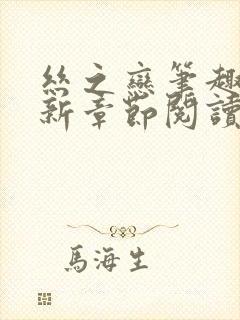 絲之戀筆趣
新章節閱讀
馬海生